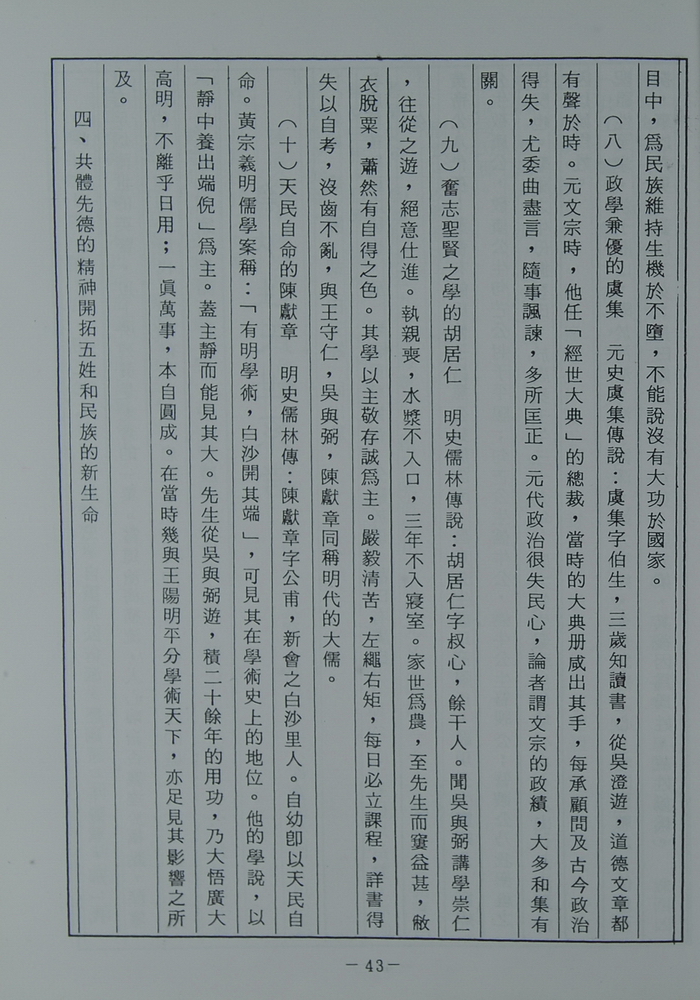 目中，為民族維持生機於不墮，不能說沒有大功於國家。
（八）政學兼優的虞集　元史虞集傳說：虞集字伯生，三歲知讀書，從吳澄遊，道德文章都
有聲於時。元文宗時，他任「經世大典」的總裁，當時的大典册咸出其手，每承顧問及古今政治
得失，尤委曲盡言，隨事諷諫，多所匡正。元代政治很失民心，論者謂文宗的政績，大多和集有
關。
（九）奮志聖賢之學的胡居仁　明史儒林傳說：胡居仁字叔心，餘干人。聞吳與弼講學崇仁
，往從之遊，絕意仕進。執親喪，水漿不入口，三年不入寢室。家世爲農，至先生而窶益甚，敝
衣脫粟，蕭然有自得之色。其學以主敬存誠爲主。嚴毅清苦，左繩右矩，每日必立課程，詳書得
失以自考，沒齒不亂，與王守仁，吳與弼，陳獻章同稱明代的大儒。
（十）天民自命的陳獻章　明史儒林傳：陳獻章字公甫，新會之白沙里人。自幼卽以天民自
命。黃宗羲明儒學案稱：「有明學術，白沙開其端」，可見其在學術史上的地位。他的學說，以
「靜中養出端倪」爲主。蓋主靜而能見其大。先生從吳與弼遊，積二十餘年的用功，乃大悟廣大
高明，不離乎日用；一眞萬事，本自圓成。在當時幾與王陽明平分學術天下，亦足見其影響之所
及。
四、共體先德的精神開拓五姓和民族的新生命
－43－